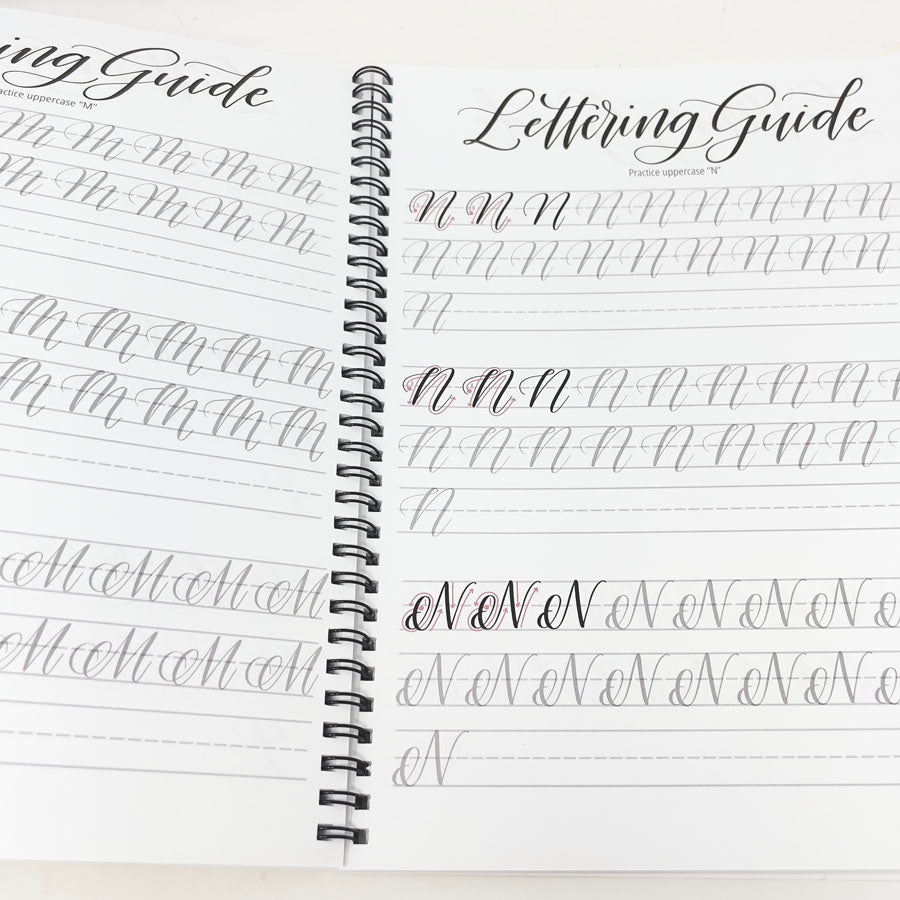 ing Guide
actice uppercase "M"
M M M M M
M M M M M
M M M M M
M M M M M
M M M M
M M M M
Lettering Guide
Practice uppercase "N"
N N N N N N N N N
N N N N N N N N N
N
N N N N N N N N
N N N N N N N N
N
N N N N N N N
N N N N N N N
N